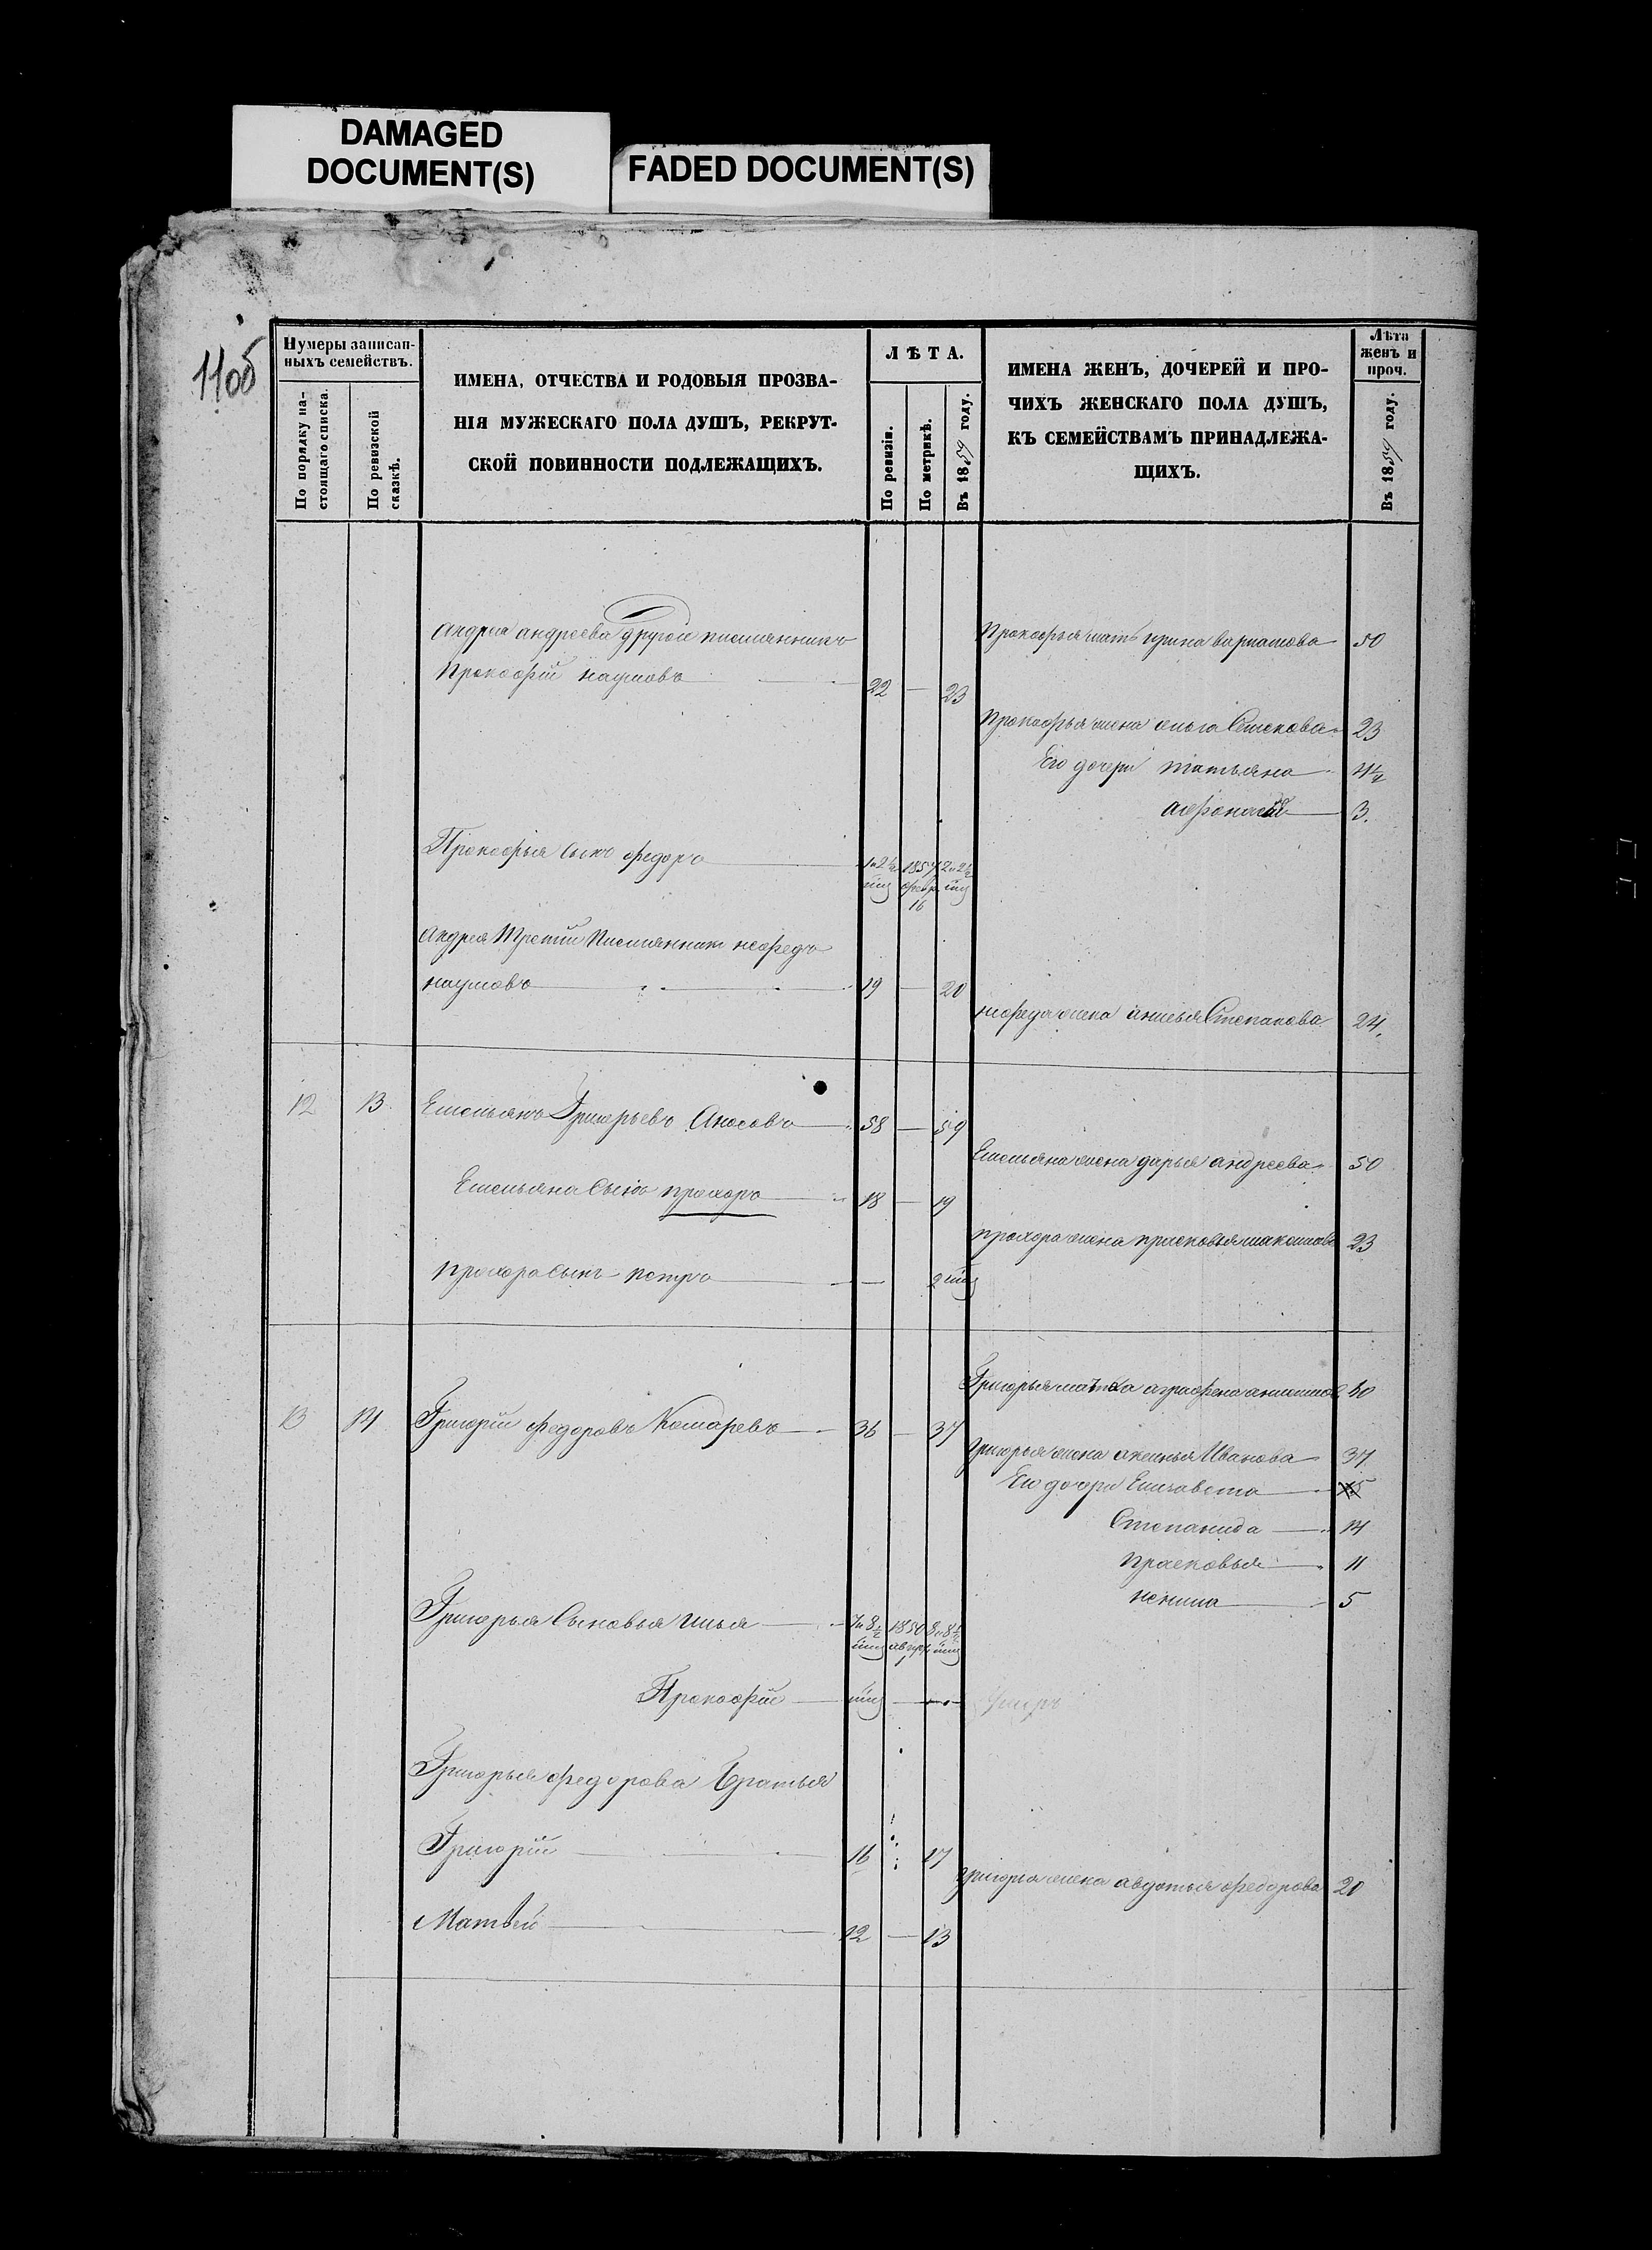 DAMAGED
DOCUMENT(S)
FADED DOCUMENT(S)
11об
Нумеры записан-
ныхъ семействъ.
По порядку на-
стоящаго списка.
По ревизской
сказкѣ.
ИМЕНА, ОТЧЕСТВА И РОДОВЫЯ ПРОЗВА-
НІЯ МУЖЕСКАГО ПОЛА ДУШЪ, РЕКРУТ-
СКОЙ ПОВИННОСТИ ПОДЛЕЖАЩИХЪ.
ЛѢТА.
По ревизіи.
По метрикѣ.
Въ 1859 году.
ИМЕНА ЖЕНЪ, ДОЧЕРЕЙ И ПРО-
ЧИХЪ ЖЕНСКАГО ПОЛА ДУШЪ,
КЪ СЕМЕЙСТВАМЪ ПРИНАДЛЕЖА-
ЩИХЪ.
Лѣта
женъ и
проч.
Въ 1859 году.
Андрея андреева другой племянникъ
Прокофій наумовъ 22 — 23
Прокофья мать ирина 50
Прокофья жена ольга 23
Его дочери татьяна
3.
Прокофья сынъ федоръ 1857
февр.
16
Андрея Третій Племянникъ нефедъ
наумовъ 19 — 20
нефеда жена Степанова 24
12 13 Емельянъ Григорьевъ Аносовъ 58 — 59
Емельяна жена дарья андреева 50
Емельяна Сынъ прохоръ 18 — 19
прохора жена прасковья максимова 23
прохора сынъ петръ —
Григорья аграфена 60
13 14 Григорій федоровъ Комаревъ 36 — 37
Григорья жена аксинья Иванова 37
Его дочери Елизавета
Степанида 14
прасковья 11
5
Григорья Сыновья илья 1850
Прокофій — умеръ
Григорья федорова братья
Григорій 16 17
григорья жена авдотья федорова 20
Матвей 12 — 13